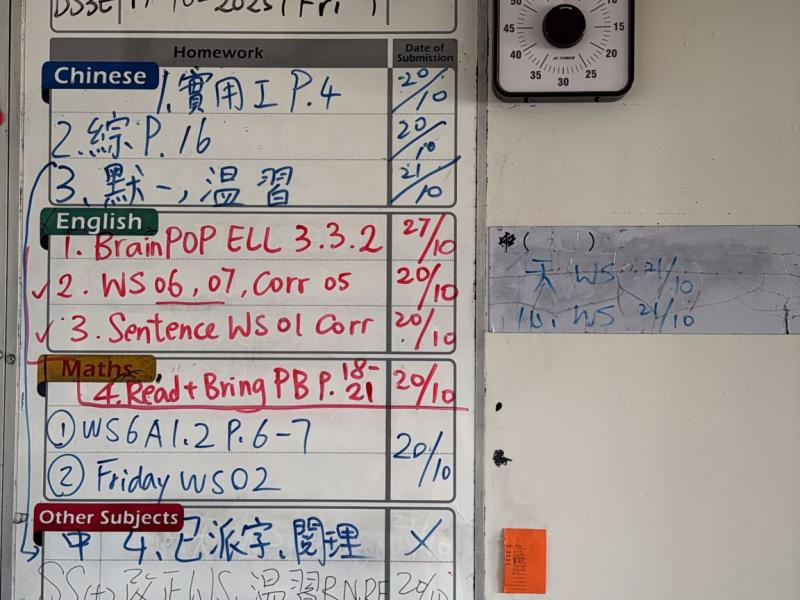 Homework Date of Submission
Chinese
1. 實用工 P.4 20/10
2. 綜 P.16 20/10
3. 默一, 溫習 21/10
English
1. BrainPOP ELL 3.3.2 27/10
✓2. WS 06, 07, Corr 05 20/10
✓3. Sentence WS 01 Corr 20/10
Maths
4. Read + Bring PB P. 18-21 20/10
① WS6A1.2 P.6-7 20/10
② Friday WS02
Other Subjects
中 4. 已派字、閱理 X
改正WS, 溫習 20/10
50 10
45 15
40 20
35 30 25
中( )
天 WS 21/10
心 WS 21/10